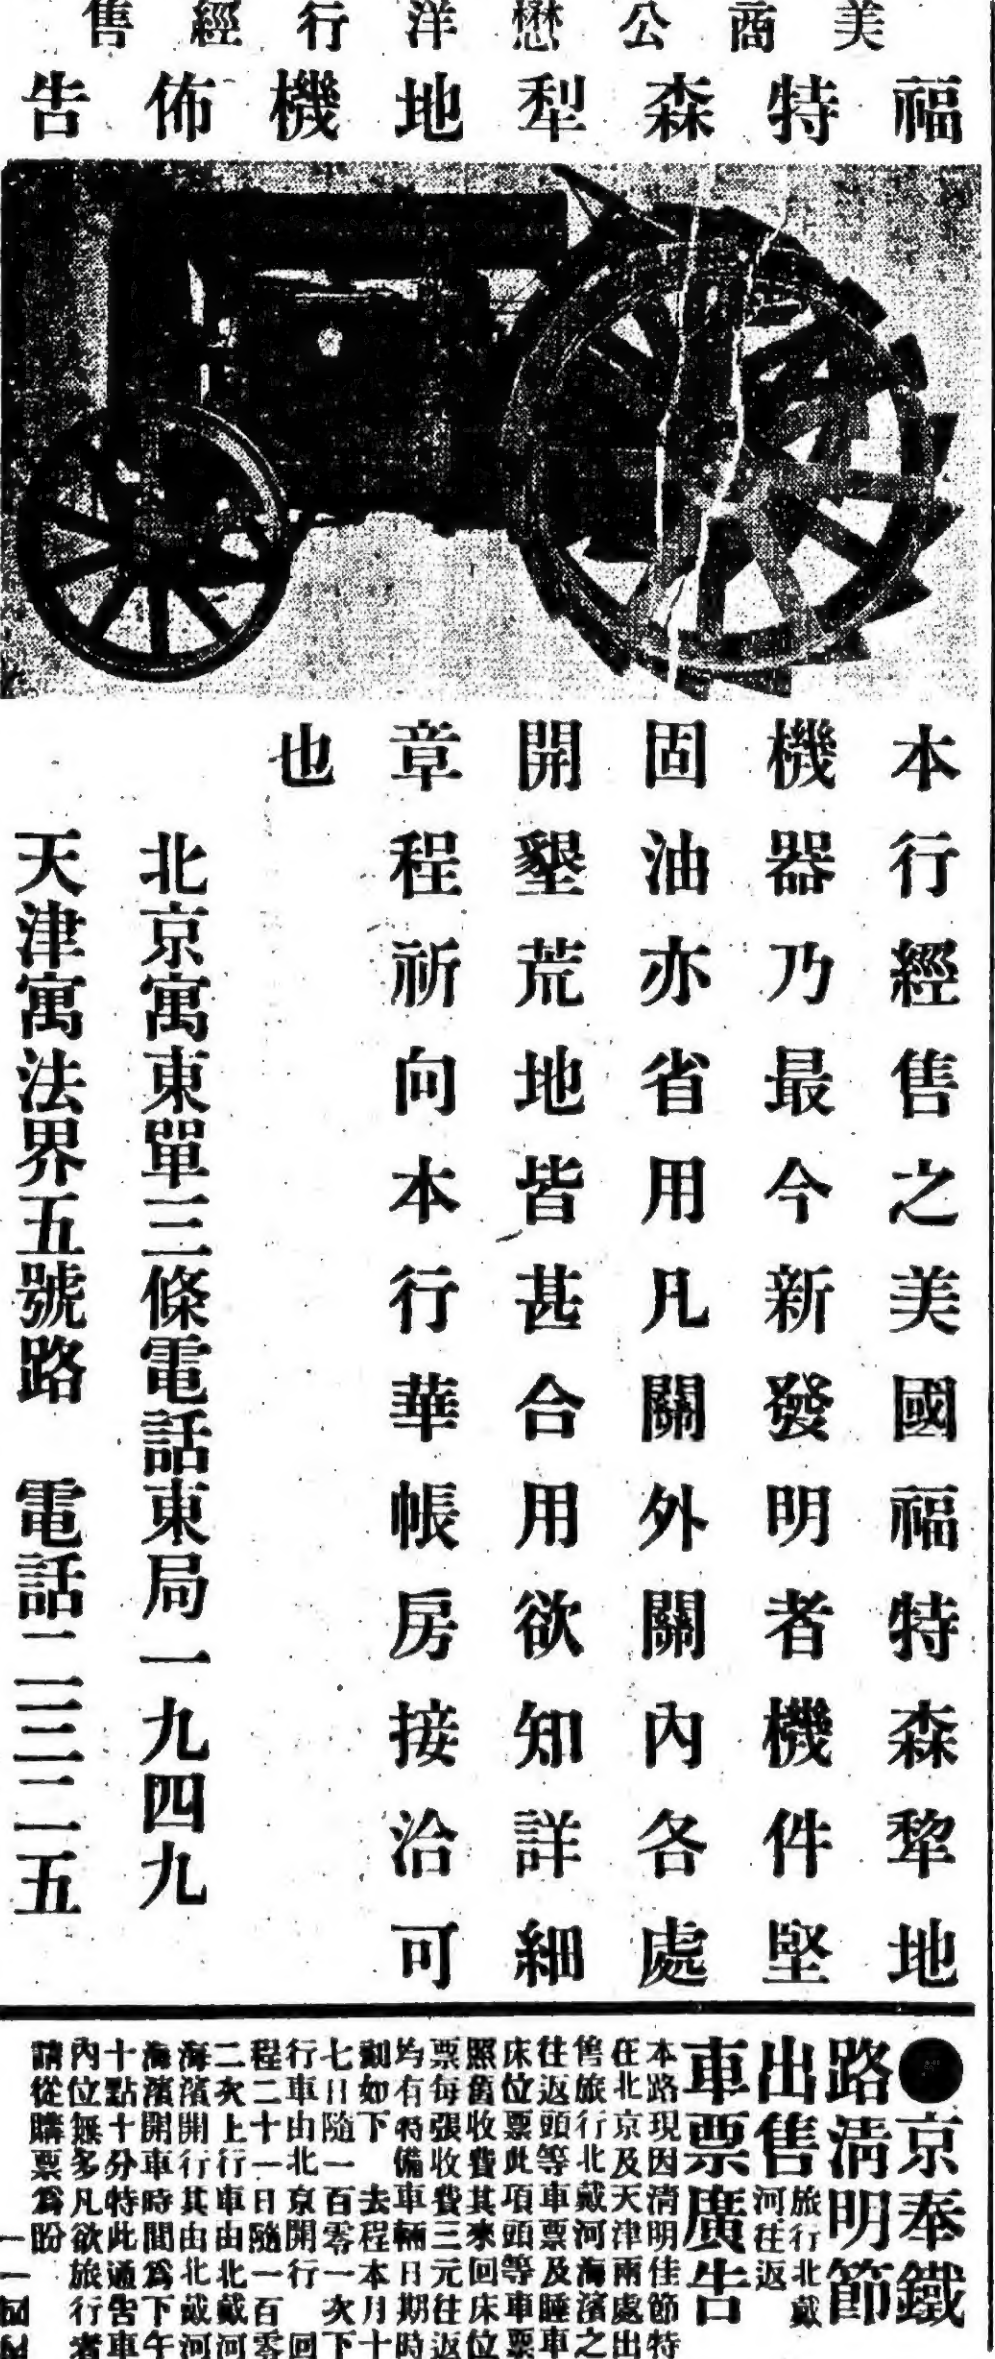 美商公懋洋行經售
福特森犁地機佈告
本行經售之美國福特森犂地
機器乃最今新發明者機件堅
固油亦省用凡關外關內各處
開墾荒地皆甚合用欲知詳細
章程祈向本行華帳房接洽可
也
北京寓東單三條電話東局一九四九
天津寓法界五號路 電話二三二五
●京奉鐵
路淸明節
出售旅行北戴
河往返
車票廣告
本路現因淸明佳節特
在北京及天津兩處出
售旅行北戴河海濱之
往返頭等車票及睡車
床位票此項頭等車票
照舊收費其來回床位
票每張收費三元往返
均有特備車輛日期時
刻如下 去程本月十
七日隨一百零一次下
行車由北京開行 回
程二十一日隨一百零
二次上行車由北戴河
海濱開行其由北戴河
海濱開車時間爲下午
十點十分特此通告車
內位無多凡欲旅行者
請從購票爲盼